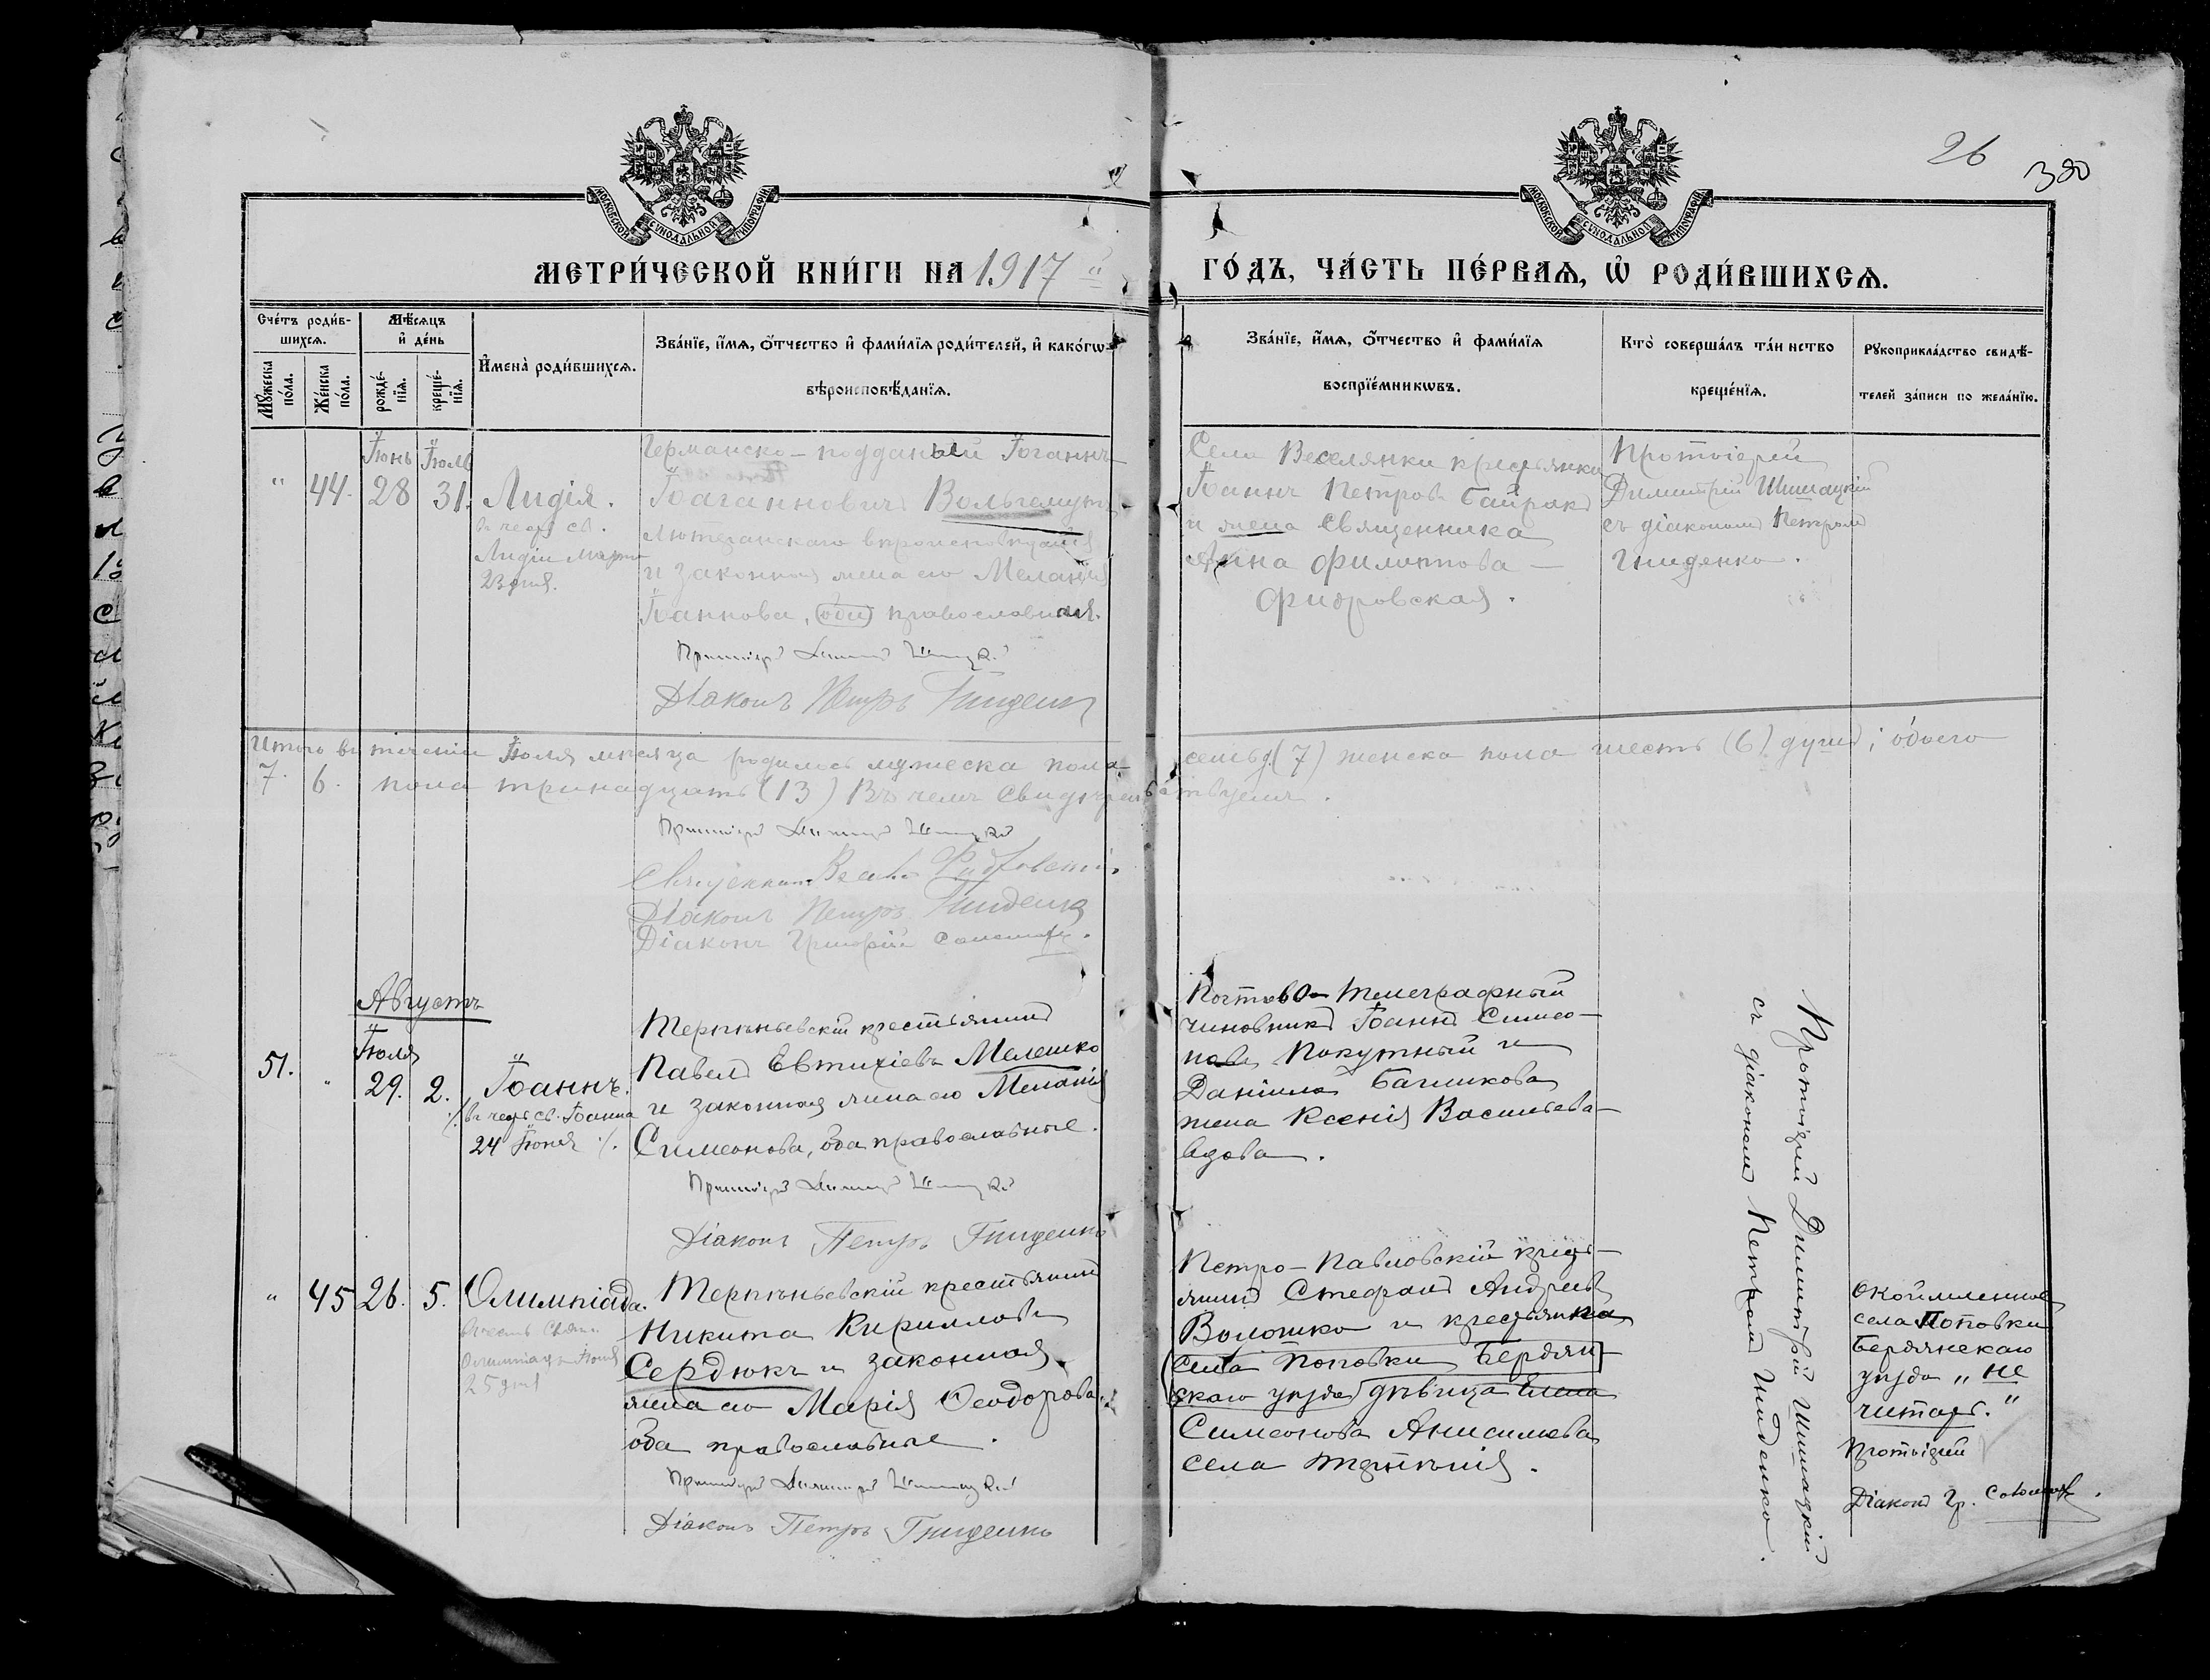 26
380
МОСКОВСКОЙ СѴНОДАЛЬНОЙ ТИПОГРАФІИ
МОСКОВСКОЙ СѴНОДАЛЬНОЙ ТИПОГРАФІИ
МЕТРИ́ЧЕСКОЙ КНИ́ГИ НА 1917
ГО́ДЪ, ЧА́СТЬ ПЕ́РВАѦ, Ѡ҆ РОДИ́ВШИХСѦ.
Сче́тъ роди́в-
шихсѧ.
Мѣ́сѧцъ
и҆ де́нь
Мꙋ́жеска
по́ла.
Же́нска
по́ла.
рожде́-
нїѧ.
креще́-
нїѧ.
И҆мена̀ роди́вшихсѧ.
Зва́нїе, и҆́мѧ, ѻ҆́тчество и҆ фами́лїѧ роди́телей, и҆ како́гѡ
вѣроисповѣ́данїѧ.
Зва́нїе, и҆́мѧ, ѻ҆́тчество и҆ фами́лїѧ
воспрїе́мникѡвъ.
Кто̀ соверша́лъ та́инство
креще́нїѧ.
Рꙋкоприкла́дство свидѣ́-
телей за́писи по жела́нїю.
Іюнь Іюль
" 44. 28 31. Лидія.
въ честь св.
Лидіи Марта
23 дня.
Германско-подданый Іоганнъ
Іоганновичъ Вольгемутъ
лютеранскаго вѣроисповѣданія
и законная жена его Меланія
Іоаннова, (оба) православная.
Протоіерей Димитрій Шишацкій
Діаконъ Петръ Гниденко
Села Веселянки крестьянинъ
Іоаннъ Петровъ Байракъ
и жена Священника
Анна Филиппова
Фидровская.
Протоіерей
Димитрій Шишацкій
съ діакономъ Петромъ
Гниденко.
Итого въ теченіи Іюля мѣсяца родилось мужеска пола семь (7) женска пола шесть (6) душъ; обоего
7. 6. пола тринадцать (13) Въ чемъ свидѣтельствуемъ.
Протоіерей Димитрій Шишацкій
Священникъ
Діаконъ Петръ Гниденко
Діаконъ Григорій
Августъ
Іюля
51. " 29. 2. Іоаннъ.
въ честь св. Іоанна
24 Іюня
Терпѣньевскій крестьянинъ
Павелъ Евтихіевъ Мелешко
и законная жена его Меланія
Симеонова, оба православные.
Протоіерей Димитрій Шишацкій
Діаконъ Петръ Гниденко
Почтово-телеграфный
чиновникъ Іоаннъ Симео-
новъ Покутный и
Даніила Багликова
жена Ксенія Васильева
вдова.
Протоіерей Димитрій Шишацкій
съ діакономъ Петромъ Гниденко.
" 45 26. 5. Олимпіада.
въ честь Свят.
Олимпіады Іюля
25 дня
Терпѣньевскій крестьянинъ
Никита Кирилловъ
Сердюкъ и законная
жена его Марія Ѳеодорова
оба православные.
Протоіерей Димитрій Шишацкій
Діаконъ Петръ Гниденко
Петро-Павловскій кресть-
янинъ Стефанъ Андреевъ
Волошко и крестьянка
(села Поповки Бердян-
скаго уѣзда) дѣвица Елена
Симеонова Анисимова
села Терпѣнія.
Окоймленное
села Поповки
Бердянскаго
уѣзда „не
читать."
Протоіерей
Діаконъ Гр.